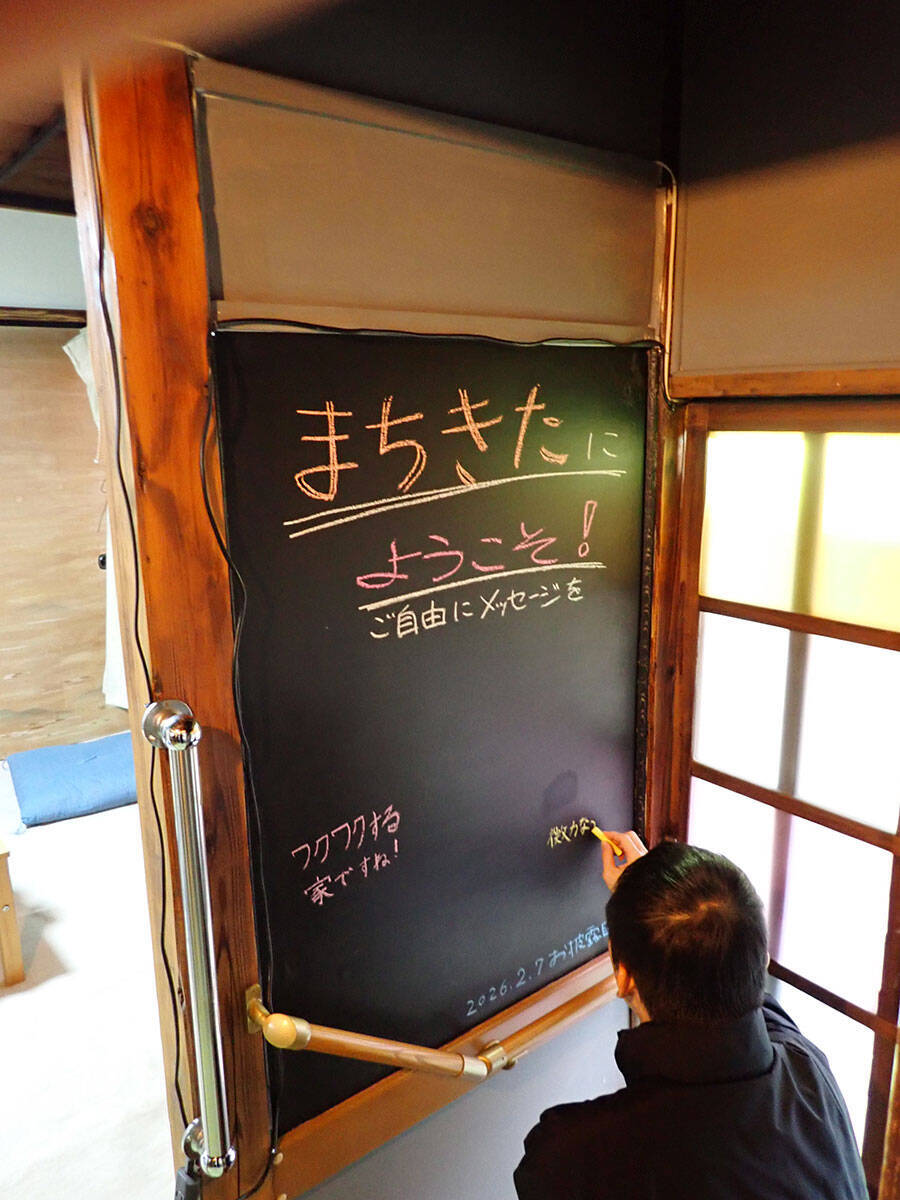 まちきたに
ようこそ！
ご自由にメッセージを
ワクワクする
家ですね！
微力なが
2026.2.7 お披露目